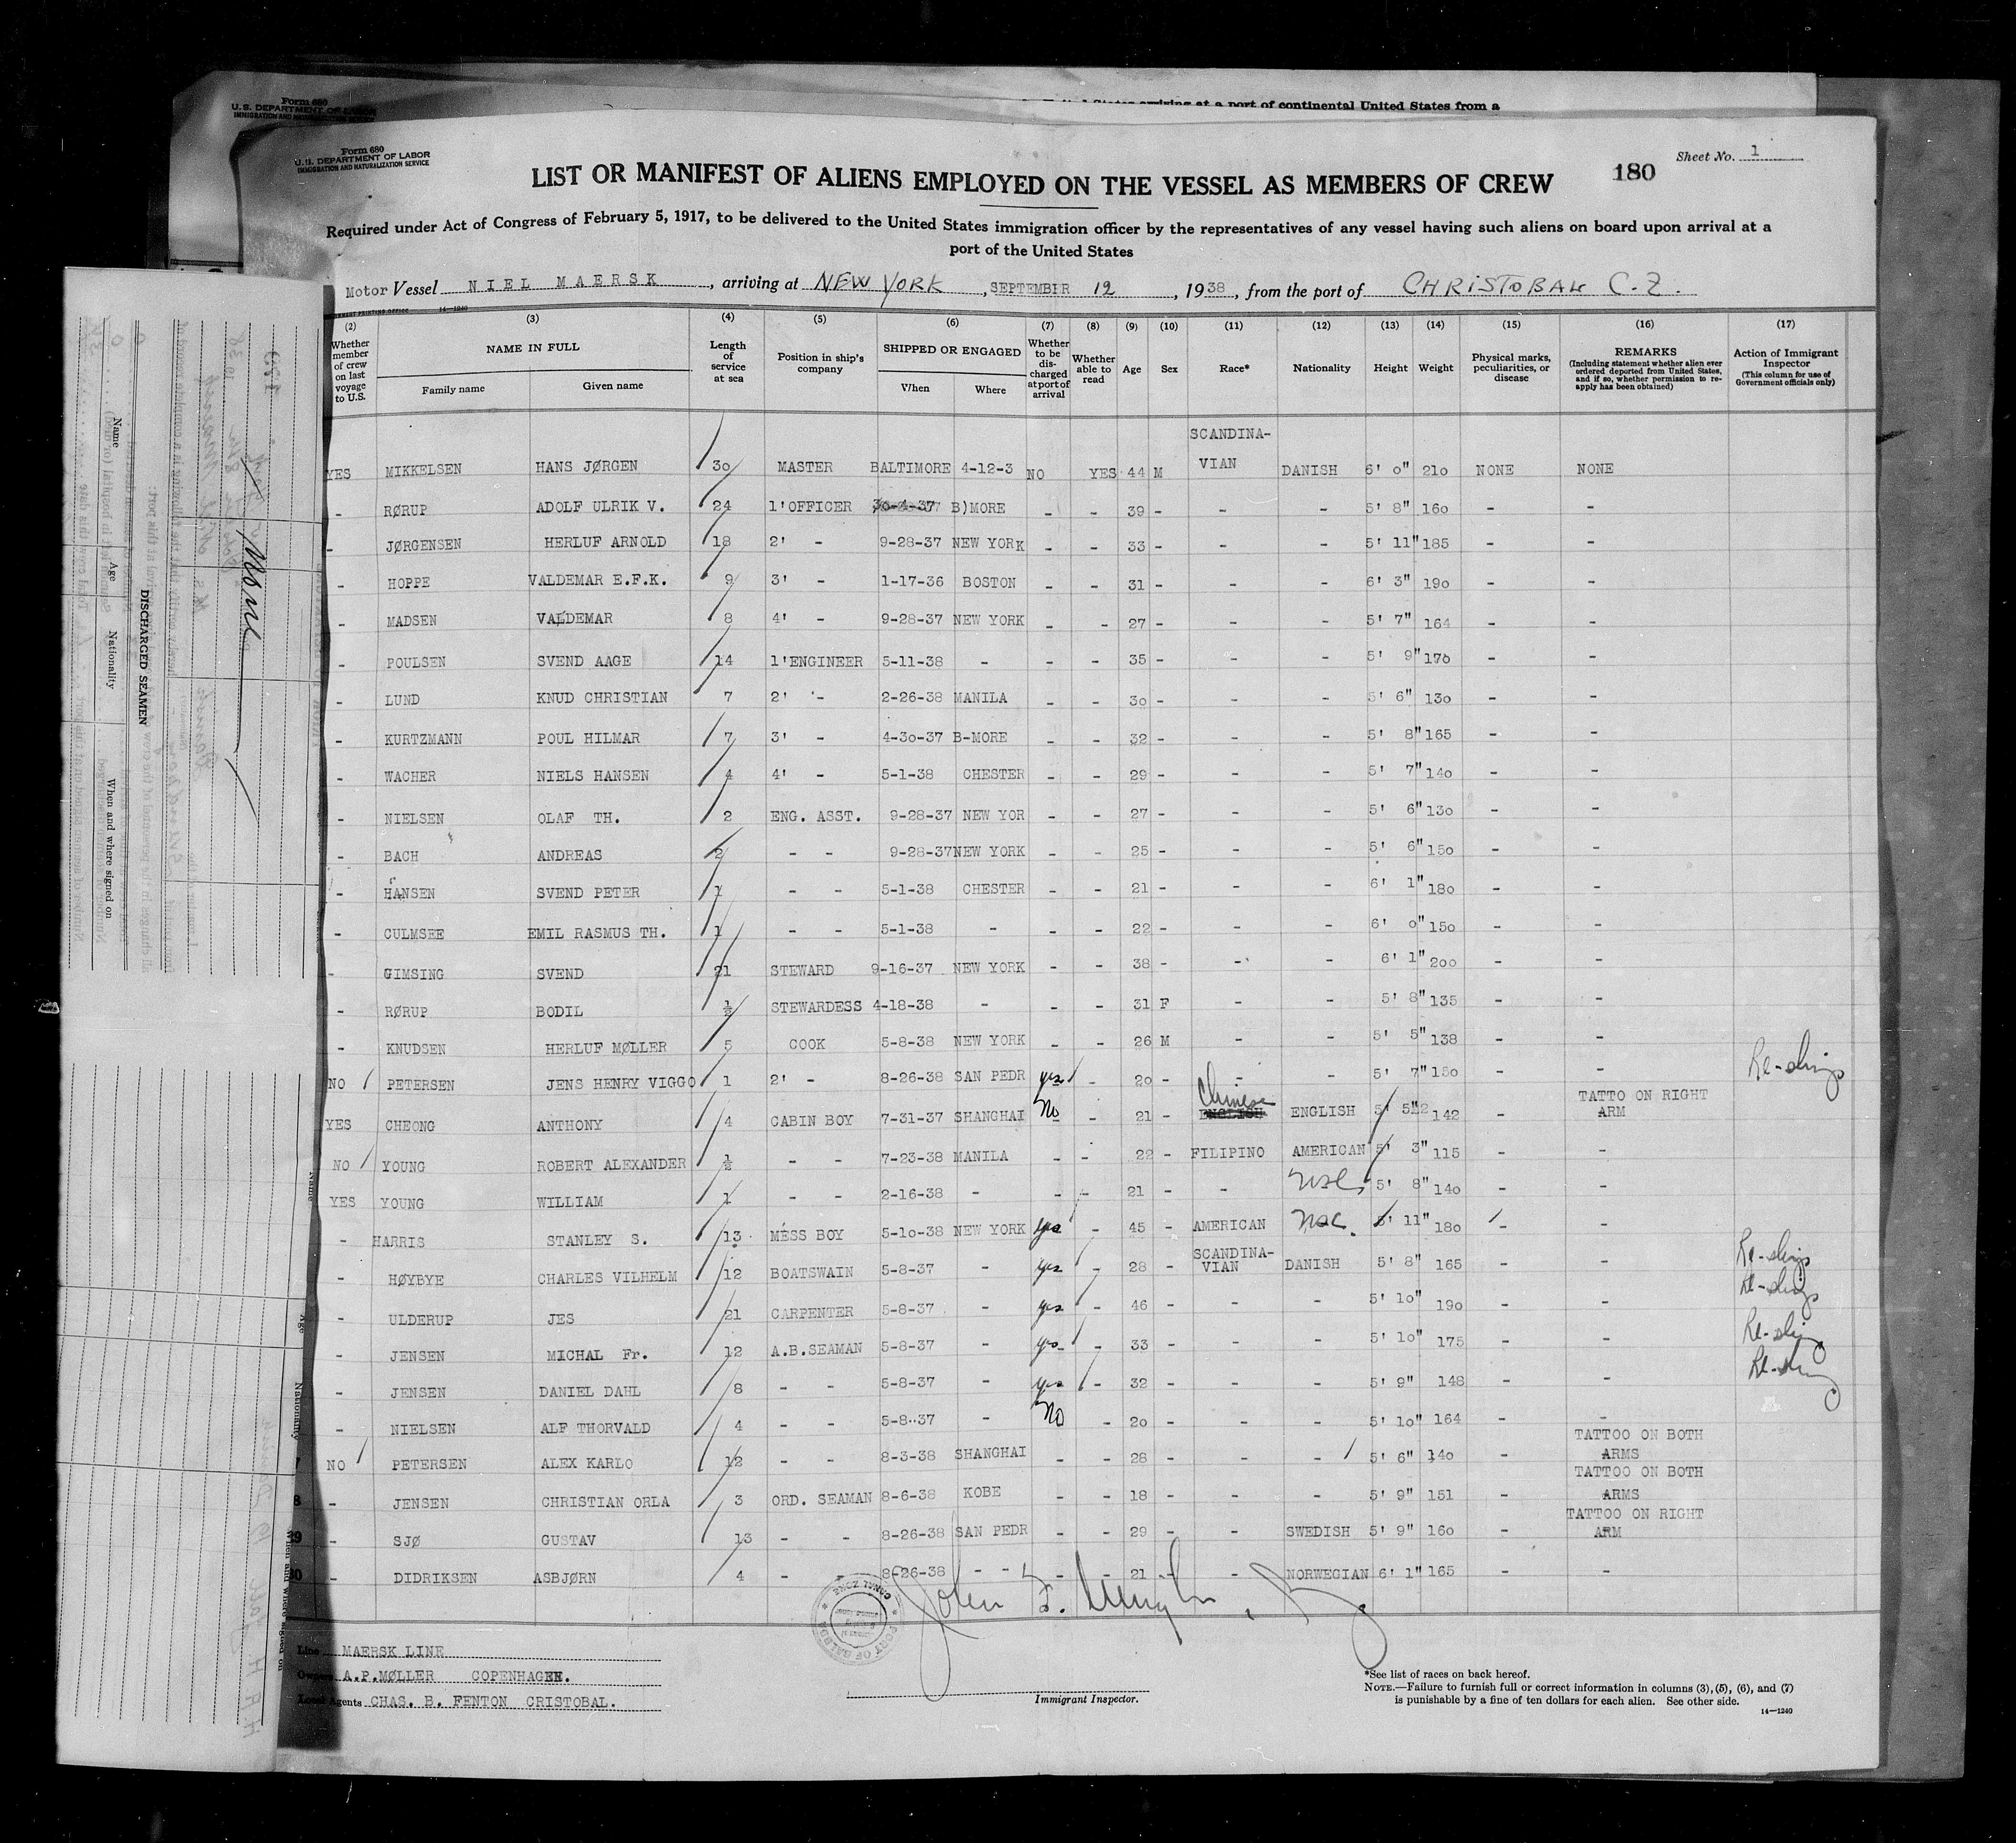 Form 680
U.S. DEPARTMENT OF LABOR
IMMIGRATION AND NATURALIZATION SERVICE
arriving at a port of continental United States from a
Form 680
U.S. DEPARTMENT OF LABOR
IMMIGRATION AND NATURALIZATION SERVICE
Sheet No. 1
180
LIST OR MANIFEST OF ALIENS EMPLOYED ON THE VESSEL AS MEMBERS OF CREW
Required under Act of Congress of February 5, 1917, to be delivered to the United States immigration officer by the representatives of any vessel having such aliens on board upon arrival at a
port of the United States
Motor Vessel NIEL MAERSK, arriving at NEW YORK, SEPTEMBIR 12, 1938, from the port of CHRISTOBAL C.Z.
GOVERNMENT PRINTING OFFICE 14—1240
(2) (3) (4) (5) (6) (7) (8) (9) (10) (11) (12) (13) (14) (15) (16) (17)
Whether member of crew on last voyage to U.S. NAME IN FULL Family name Given name Length of service at sea Position in ship's company SHIPPED OR ENGAGED When Where Whether to be discharged at port of arrival Whether able to read Age Sex Race* Nationality Height Weight Physical marks, peculiarities, or disease REMARKS (Including statement whether alien ever ordered deported from United States, and if so, whether permission to reapply has been obtained) Action of Immigrant Inspector (This column for use of Government officials only)
YES MIKKELSEN HANS JØRGEN 30 MASTER BALTIMORE 4-12-3 NO YES 44 M SCANDINA-VIAN DANISH 6' 0" 210 NONE NONE
- RØRUP ADOLF ULRIK V. 24 1'OFFICER 30-4-37 B)MORE - - 39 - - - 5' 8" 160 - -
- JØRGENSEN HERLUF ARNOLD 18 2' - 9-28-37 NEW YORK - - 33 - - - 5' 11" 185 - -
- HOPPE VALDEMAR E.F.K. 9 3' - 1-17-36 BOSTON - - 31 - - - 6' 3" 190 - -
- MADSEN VALDEMAR 8 4' - 9-28-37 NEW YORK - - 27 - - - 5' 7" 164 - -
- POULSEN SVEND AAGE 14 1'ENGINEER 5-11-38 - - - 35 - - - 5' 9" 170 - -
- LUND KNUD CHRISTIAN 7 2' - 2-26-38 MANILA - - 30 - - - 5' 6" 130 - -
- KURTZMANN POUL HILMAR 7 3' - 4-30-37 B-MORE - - 32 - - - 5' 8" 165 - -
- WACHER NIELS HANSEN 4 4' - 5-1-38 CHESTER - - 29 - - - 5' 7" 140 - -
- NIELSEN OLAF TH. 2 ENG. ASST. 9-28-37 NEW YOR - - 27 - - - 5' 6" 130 - -
- BACH ANDREAS 2 - - 9-28-37 NEW YORK - - 25 - - - 5' 6" 150 - -
- HANSEN SVEND PETER 1 - - 5-1-38 CHESTER - - 21 - - - 6' 1" 180 - -
- CULMSEE EMIL RASMUS TH. 1 - - 5-1-38 - - - 22 - - - 6' 0" 150 - -
- GIMSING SVEND 21 STEWARD 9-16-37 NEW YORK - - 38 - - - 6' 1" 200 - -
- RØRUP BODIL ½ STEWARDESS 4-18-38 - - - 31 F - - 5' 8" 135 - -
- KNUDSEN HERLUF MØLLER 5 COOK 5-8-38 NEW YORK - - 26 M - - 5' 5" 138 - -
NO PETERSEN JENS HENRY VIGGO 1 2' - 8-26-38 SAN PEDR yes - 20 - - - 5' 7" 150 - - Re-ships
YES CHEONG ANTHONY 4 CABIN BOY 7-31-37 SHANGHAI No - 21 - ENGLISH Chinese ENGLISH 5' 5"½ 142 - TATTO ON RIGHT ARM
NO YOUNG ROBERT ALEXANDER ½ - - 7-23-38 MANILA - - 22 - FILIPINO AMERICAN 5' 3" 115 - -
YES YOUNG WILLIAM 1 - - 2-16-38 - - - 21 - - USC 5' 8" 140 - -
- HARRIS STANLEY S. 13 MESS BOY 5-10-38 NEW YORK yes - 45 - AMERICAN USC 5' 11" 180 - -
- HØYBYE CHARLES VILHELM 12 BOATSWAIN 5-8-37 - yes - 28 - SCANDINA-VIAN DANISH 5' 8" 165 - - Re-ships
- ULDERUP JES 21 CARPENTER 5-8-37 - yes - 46 - - - 5' 10" 190 - - Re-ships
- JENSEN MICHAL Fr. 12 A.B.SEAMAN 5-8-37 - yes - 33 - - - 5' 10" 175 - - Re-ship
- JENSEN DANIEL DAHL 8 - - 5-8-37 - yes - 32 - - - 5' 9" 148 - - Re-ship
- NIELSEN ALF THORVALD 4 - - 5-8-37 - No - 20 - - - 5' 10" 164 - -
NO PETERSEN ALEX KARLO 12 - - 8-3-38 SHANGHAI - - 28 - - - 5' 6" 140 - TATTOO ON BOTH ARMS
8 - JENSEN CHRISTIAN ORLA 3 ORD. SEAMAN 8-6-38 KOBE - - 18 - - - 5' 9" 151 - TATTOO ON BOTH ARMS
29 - SJØ GUSTAV 13 - - 8-26-38 SAN PEDR - - 29 - - SWEDISH 5' 9" 160 - TATTOO ON RIGHT ARM
30 - DIDRIKSEN ASBJØRN 4 - - 8-26-38 - - - - 21 - - NORWEGIAN 6' 1" 165 - -
PORT OF BALBOA CANAL ZONE
John F.
Line MAERSK LINE
Owners A.P.MØLLER COPENHAGEN.
Local Agents CHAS. B. FENTON CRISTOBAL.
Immigrant Inspector.
*See list of races on back hereof.
NOTE.—Failure to furnish full or correct information in columns (3), (5), (6), and (7)
is punishable by a fine of ten dollars for each alien. See other side.
14—1240
DISCHARGED SEAMEN
Name Age Nationality When and where signed on
None
179
Name Age Nationality When and where signed on